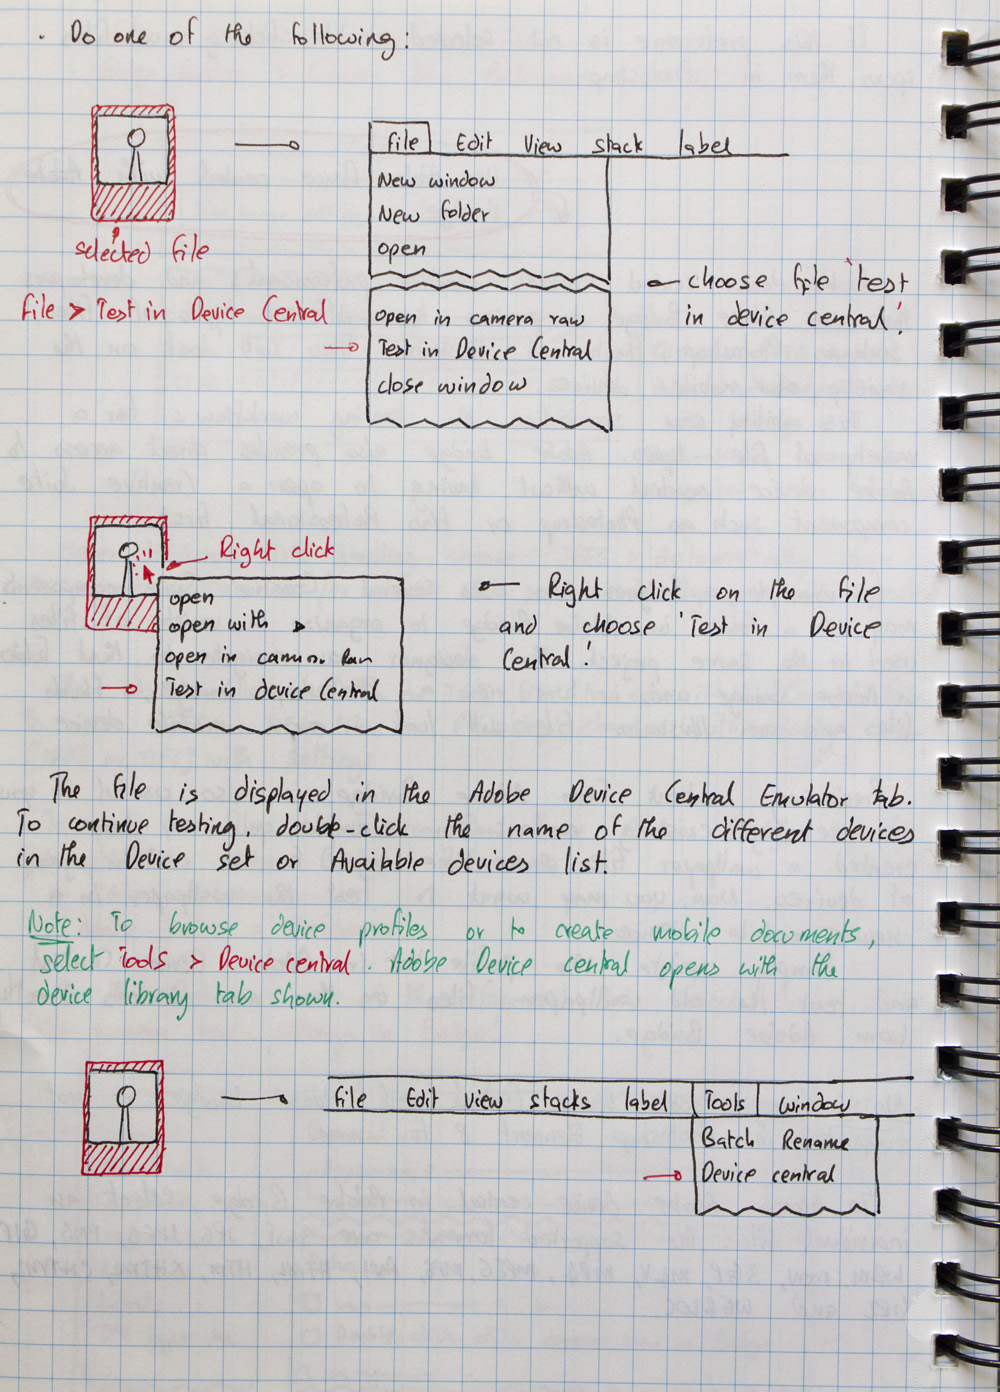 . Do one of the following:
File Edit View stack label
New window
New folder
open
selected file
File > Test in Device Central
choose file 'test
in device central'.
open in camera raw
Test in Device Central
close window
Right click
open
open with
open in camera Raw
Test in device Central
Right click on the file
and choose 'Test in Device
Central'.
The file is displayed in the Adobe Device Central Emulator tab.
To continue testing, double-click the name of the different devices
in the Device set or Available devices list.
Note: To browse device profiles or to create mobile documents,
select Tools > Device central. Adobe Device central opens with the
device library tab shown.
File Edit View stacks label Tools window
Batch Rename
Device central